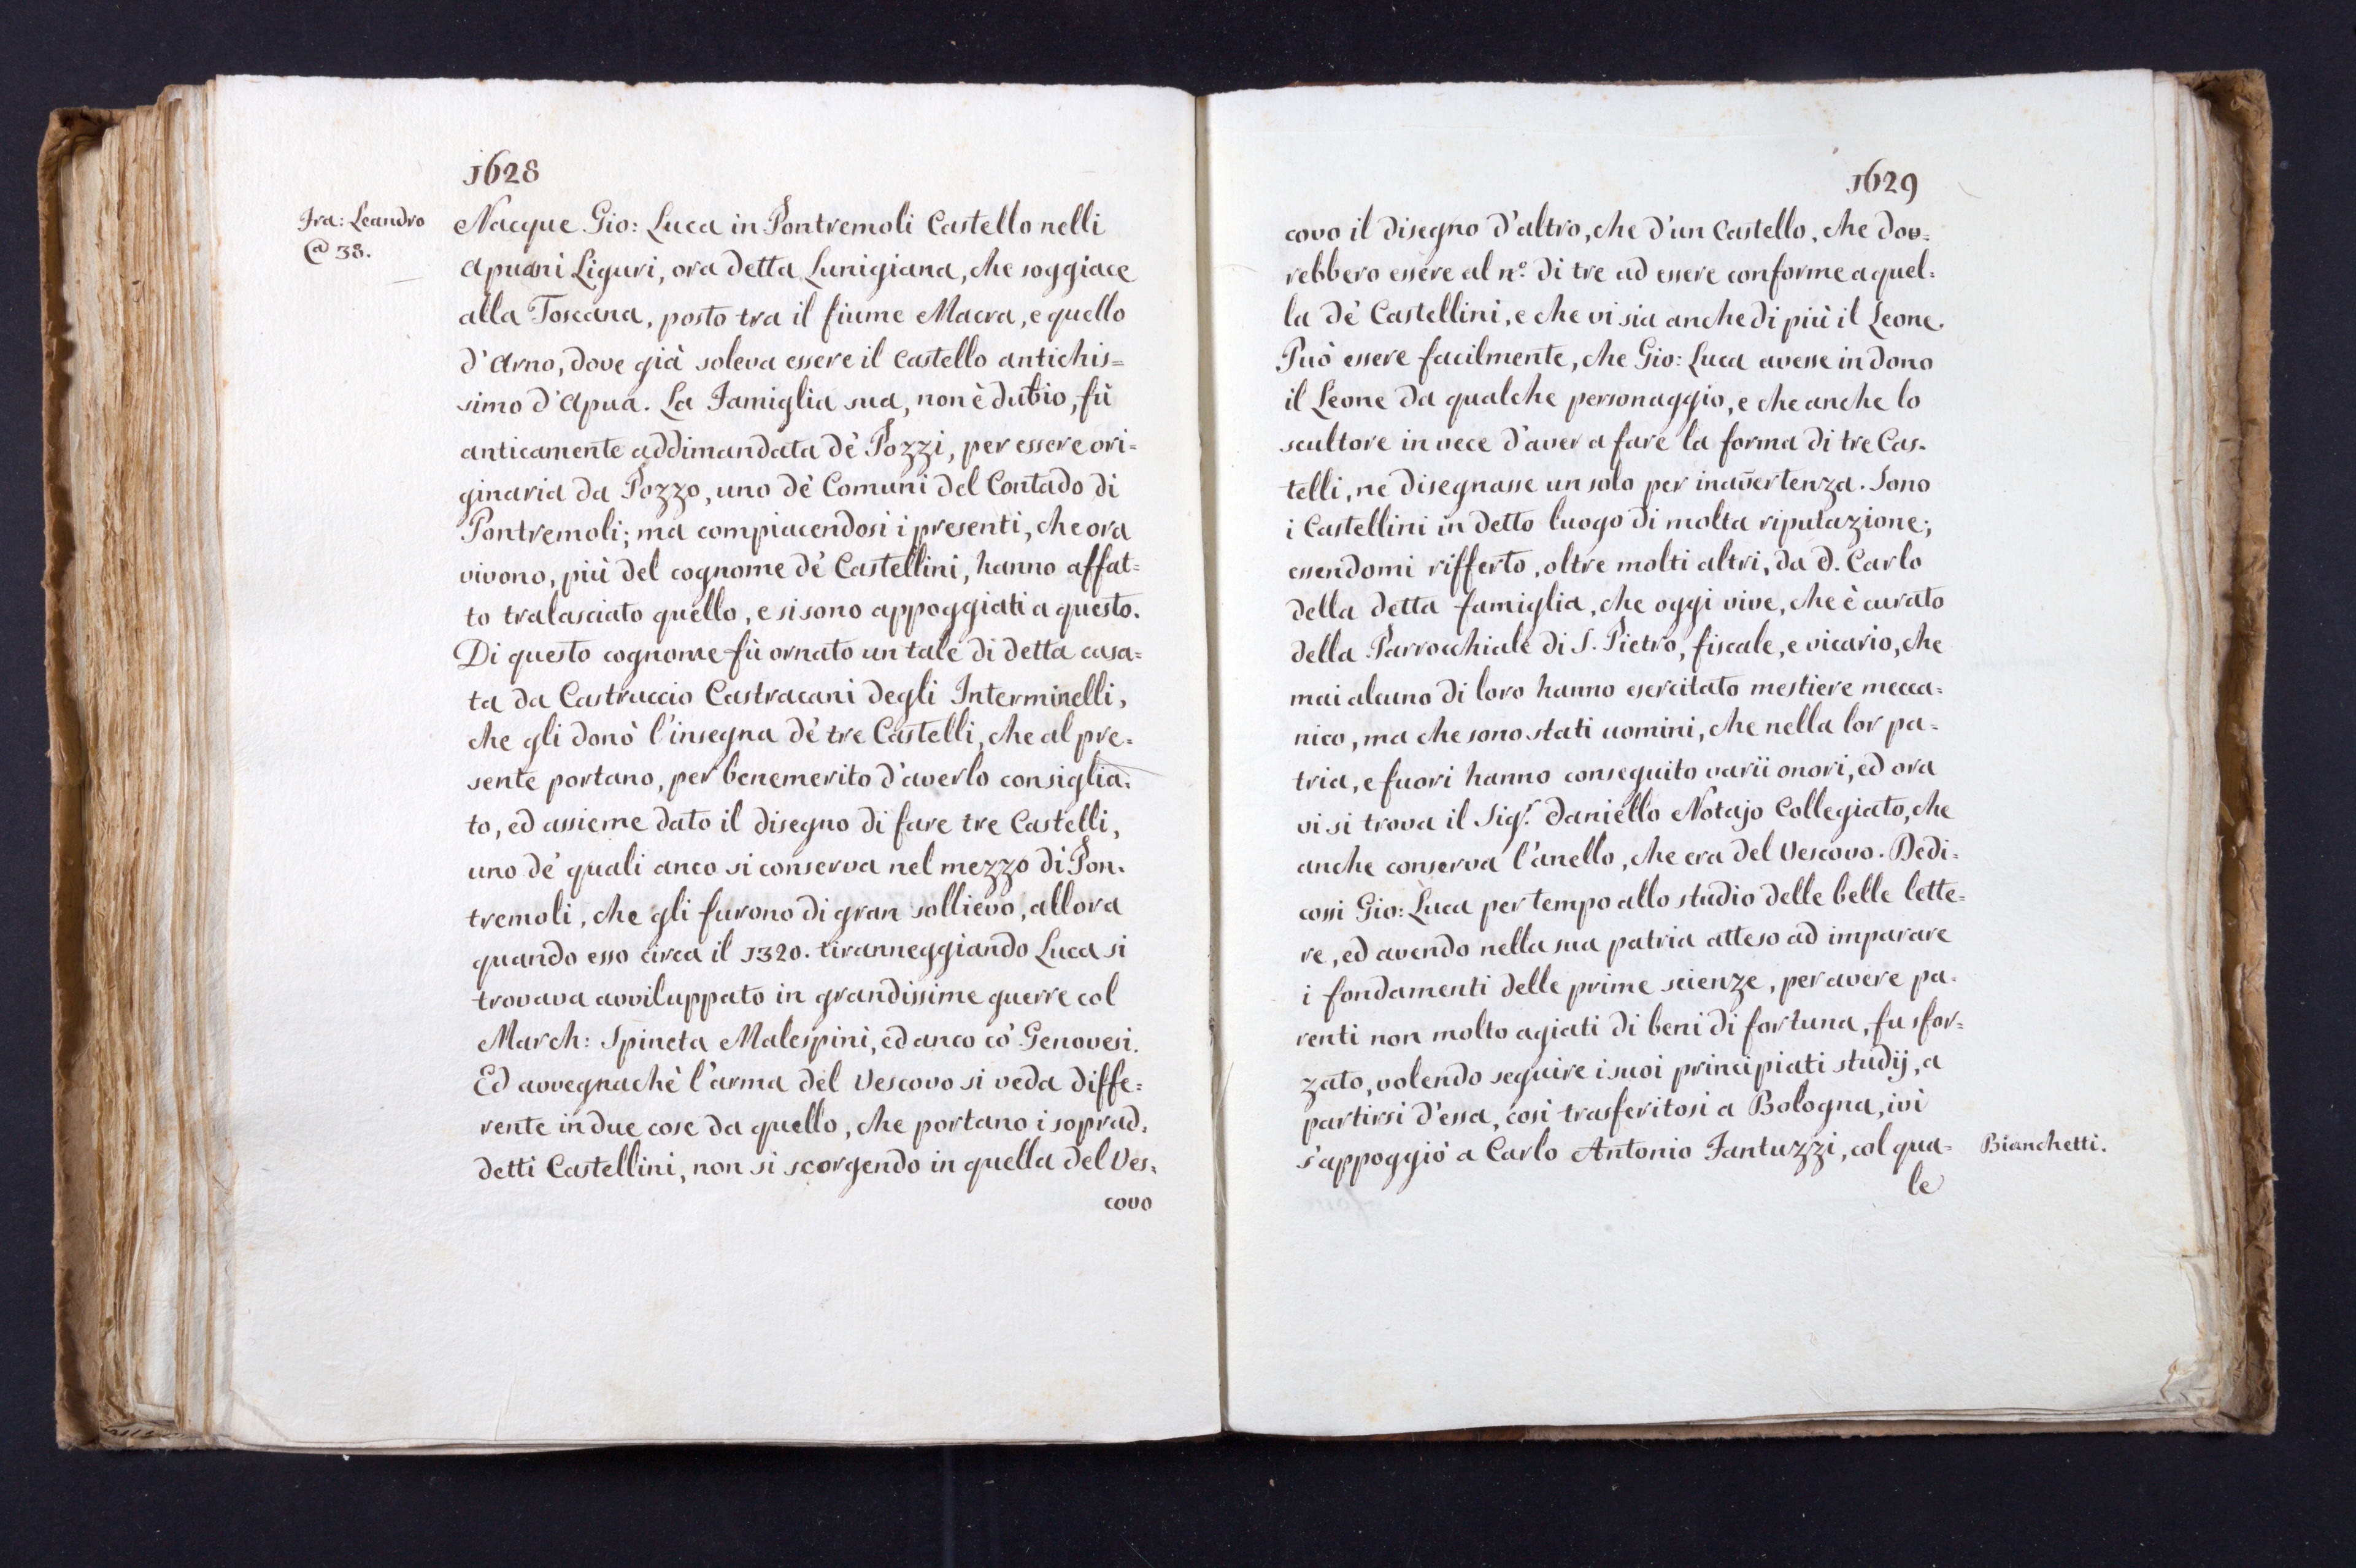 1628
Fra: Leandro
@ 38.
Nacque Gio: Luca in Pontremoli Castello nelli
Apuani Liguri, ora detta Lunigiana, che soggiace
alla Toscana, posto tra il fiume Macra, e quello
d'Arno, dove già soleva essere il Castello antichis=
simo d'Apua. La Famiglia sua, non è dubio, fù
anticamente addimandata de' Pozzi, per essere ori=
ginaria da Pozzo, uno de' Comuni del Contado di
Pontremoli; ma compiacendosi i presenti, che ora
vivono, più del cognome de' Castellini, hanno affat=
to tralasciato quello, e si sono appoggiati a questo.
Di questo cognome fù ornato un tale di detta casa=
ta da Castruccio Castracani degli Interminelli,
che gli donò l'insegna de' tre Castelli, che al pre=
sente portano, per benemerito d'averlo consiglia=
to, ed assieme dato il disegno di fare tre Castelli,
uno de' quali anco si conserva nel mezzo di Pon=
tremoli, che gli furono di gran sollievo, allora
quando esso circa il 1320. tiranneggiando Luca si
trovava avviluppato in grandissime guerre col
March: Spineta Malespini, ed anco co' Genovesi.
Ed avvegnachè l'arma del Vescovo si veda diffe=
rente in due cose da quello, che portano i soprad=
detti Castellini, non si scorgendo in quella del Ves=
covo
1629
covo il disegno d'altro, che d'un Castello, che dov=
rebbero essere al n.º di tre ad essere conforme a quel=
la de' Castellini, e che vi sia anche di più il Leone.
Può essere facilmente, che Gio: Luca avesse in dono
il Leone da qualche personaggio, e che anche lo
scultore in vece d'aver a fare la forma di tre Cas=
telli, ne disegnasse un solo per inav̄ertenza. Sono
i Castellini in detto luogo di molta riputazione;
essendomi rifferto, oltre molti altri, da D. Carlo
della detta famiglia, che oggi vive, che è curato
della Parrocchiale di S. Pietro, fiscale, e vicario, che
mai alcuno di loro hanno esercitato mestiere mecca=
nico, ma che sono stati uomini, che nella lor pa=
tria, e fuori hanno conseguito varii onori, ed ora
vi si trova il Sig.r Daniello Notajo Collegiato, che
anche conserva l'anello, che era del Vescovo. Dedi=
cossi Gio: Luca per tempo allo studio delle belle lette=
re, ed avendo nella sua patria atteso ad imparare
i fondamenti delle prime scienze, per avere pa=
renti non molto agiati di beni di fortuna, fu sfor=
zato, volendo seguire i suoi principiati studij, a
partirsi d'essa, così trasferitosi a Bologna, ivi
s'appoggiò a Carlo Antonio Fantuzzi, col qua=
Bianchetti.
le